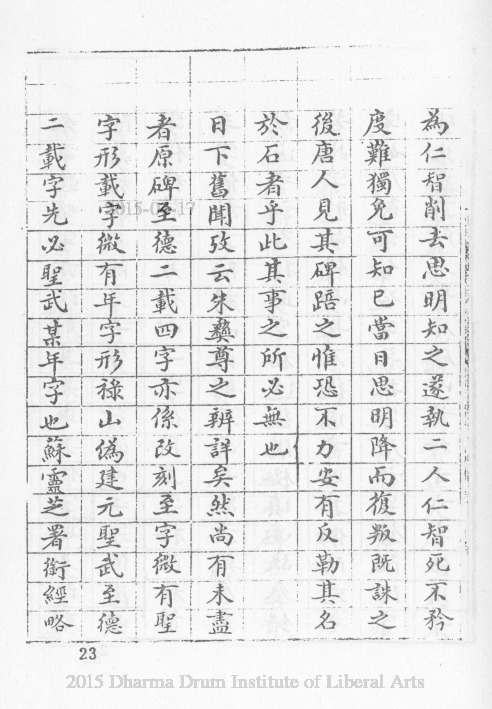 為仁智削去思明知之遂執二人仁智死不矜
度難獨免可知已當日思明降而復叛既誅之
後唐人見其碑踣之惟恐不力安有反勒其名
於石者乎此其事之所必無也
日下舊聞攷云朱彝尊之辨詳矣然尚有未盡
者原碑至德二載四字亦係改刻至字微有聖
字形載字微有年字形祿山偽建元聖武至德
二載字先必聖武某年字也蘇靈芝署銜經略
23
2015 Dharma Drum Institute of Liberal Arts